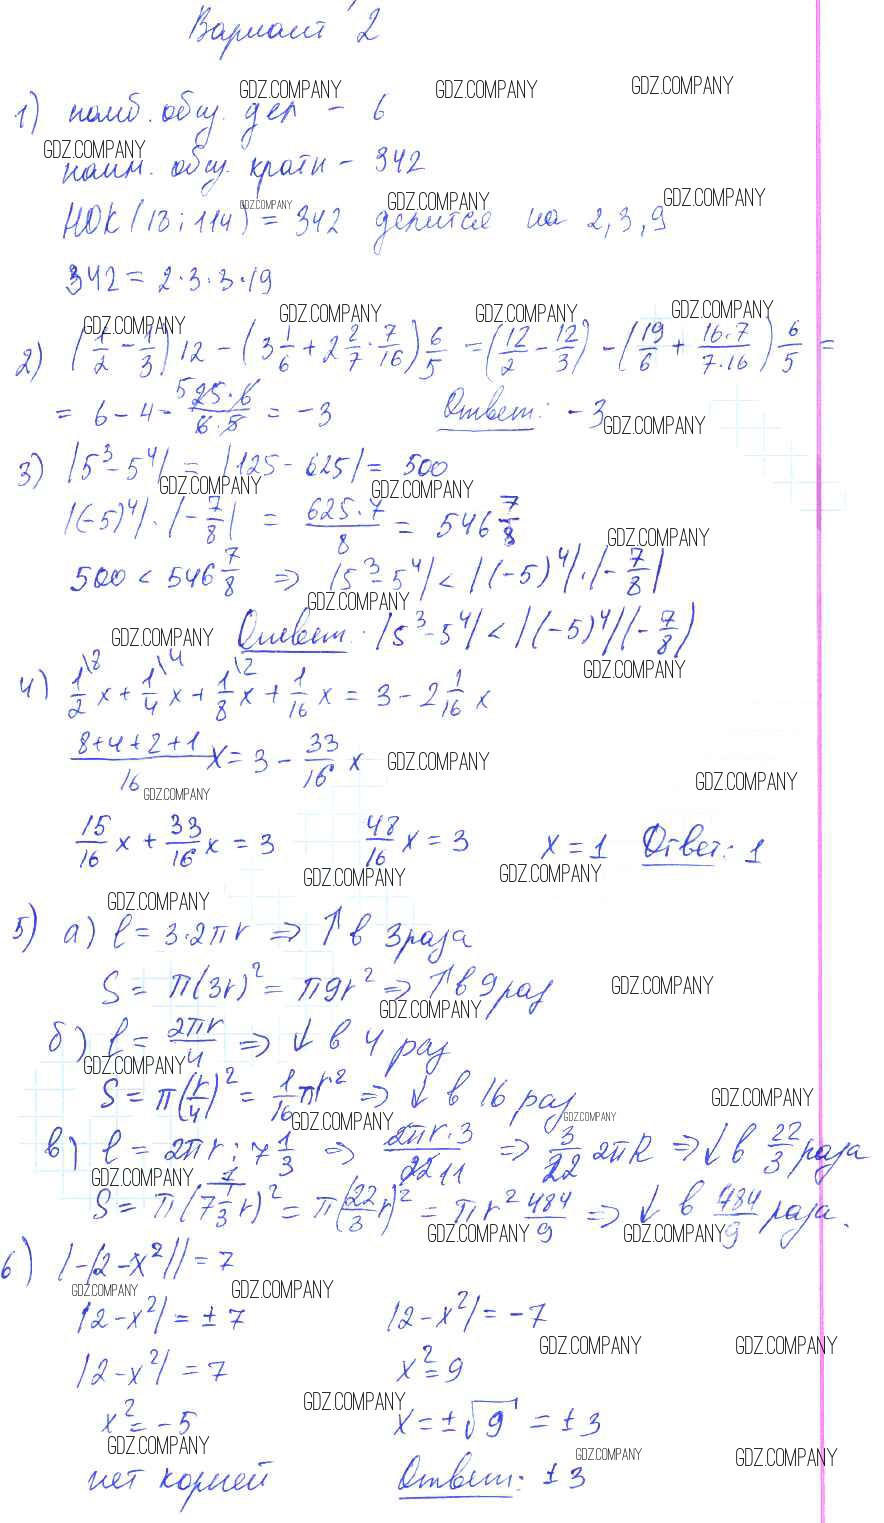 Вариант 2
GDZ.COMPANY GDZ.COMPANY GDZ.COMPANY
1) наиб. общ. дел – 6
GDZ.COMPANY
наим. общ. кратн – 342
GDZ.COMPANY GDZ.COMPANY GDZ.COMPANY
НОК (18; 114) = 342 делится на 2, 3, 9
342 = 2·3·3·19
GDZ.COMPANY GDZ.COMPANY GDZ.COMPANY GDZ.COMPANY
2) (1/2 – 1/3) 12 – (3 1/6 + 2 2/7 · 7/16) 6/5 = (12/2 – 12/3) – (19/6 + 16·7/7·16) 6/5 =
= 6 – 4 – 5 25·6/6·5 = –3 Ответ: –3
GDZ.COMPANY
3) |5³ – 5⁴| = |125 – 625| = 500
GDZ.COMPANY GDZ.COMPANY
|(–5)⁴| · |–7/8| = 625·7/8 = 546 7/8
GDZ.COMPANY
500 < 546 7/8 ⇒ |5³ – 5⁴| < |(–5)⁴| · |–7/8|
GDZ.COMPANY
GDZ.COMPANY Ответ: |5³ – 5⁴| < |(–5)⁴| |(–7/8)
GDZ.COMPANY
4) 1\8/2 x + 1\4/4 x + 1\2/8 x + 1/16 x = 3 – 2 1/16 x
8+4+2+1/16 x = 3 – 33/16 x GDZ.COMPANY
GDZ.COMPANY GDZ.COMPANY
15/16 x + 33/16 x = 3 48/16 x = 3 x = 1 Ответ: 1
GDZ.COMPANY GDZ.COMPANY
GDZ.COMPANY
5) а) l = 3·2πr ⇒ ↑ в 3 раза
S = π(3r)² = π9r² ⇒ ↑ в 9 раз GDZ.COMPANY
GDZ.COMPANY
б) l = 2πr/4 ⇒ ↓ в 4 раз
GDZ.COMPANY
S = π(r/4)² = 1/16 πr² ⇒ ↓ в 16 раз GDZ.COMPANY
GDZ.COMPANY GDZ.COMPANY
в) l = 2πr : 7 1/3 ⇒ 2πr·3/22 11 ⇒ 3/22 2πR ⇒ ↓ в 22/3 раза
GDZ.COMPANY
S = π(1/7 1/3 r)² = π(22/3 r)² = πr² 484/9 ⇒ ↓ в 484/9 раза.
GDZ.COMPANY GDZ.COMPANY
6) |–|2 – x²|| = 7
GDZ.COMPANY GDZ.COMPANY
|2 – x²| = ± 7 |2 – x²| = –7
GDZ.COMPANY GDZ.COMPANY
|2 – x²| = 7 x² = 9
GDZ.COMPANY
x² = –5 x = ±√9 = ±3
GDZ.COMPANY GDZ.COMPANY GDZ.COMPANY
нет корней Ответ: ±3